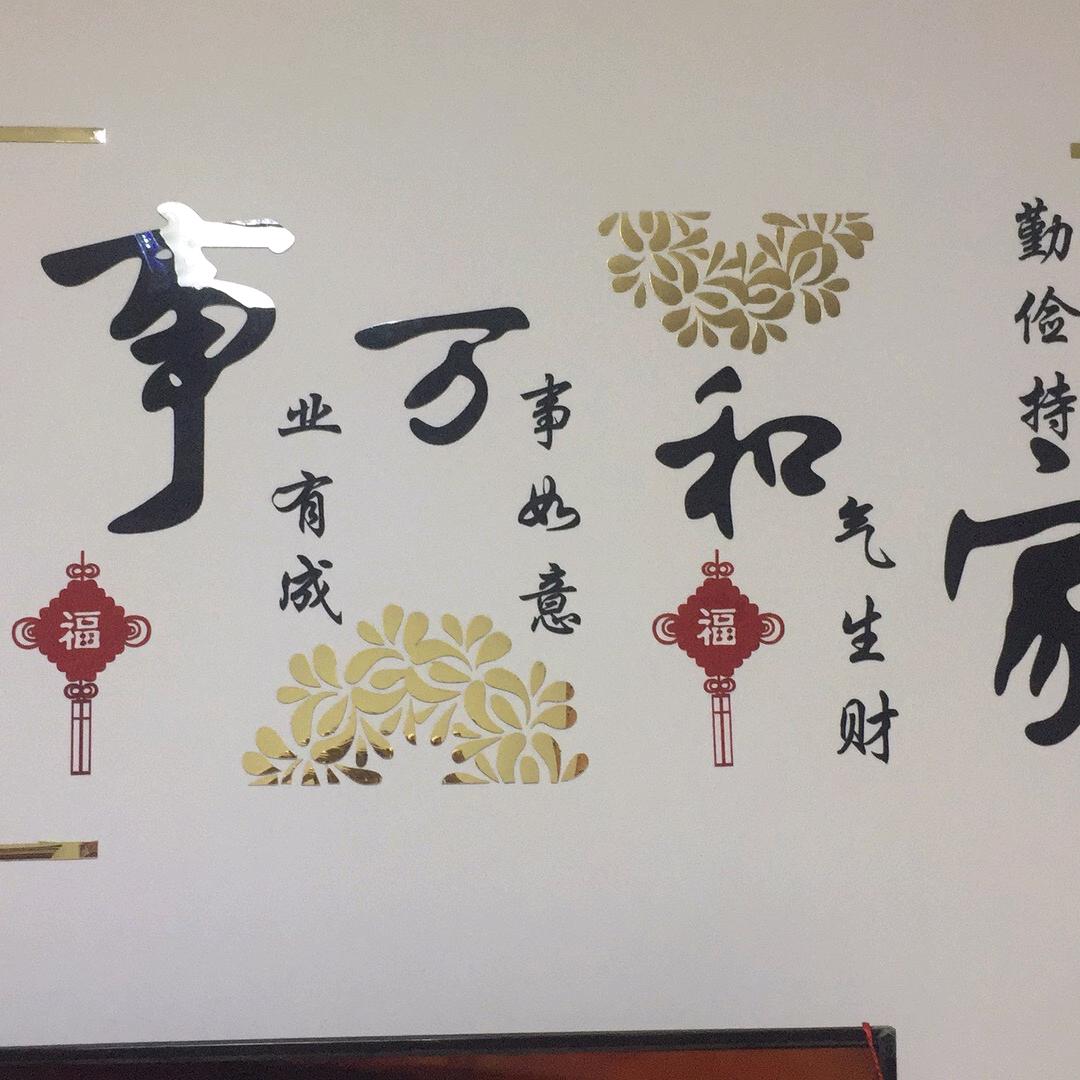 家和万事
勤俭持
气生财
事如意
业有成
福
福